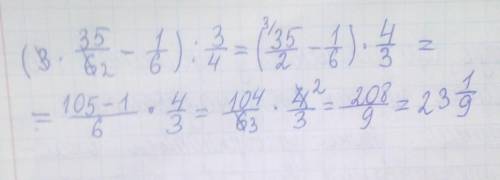 (3 · 35/6 2 − 1/6) : 3/4 = (3/ 35/2 − 1/6) · 4/3 =
= 105−1/6 · 4/3 = 104/6 3 · 4 2/3 = 208/9 = 23 1/9